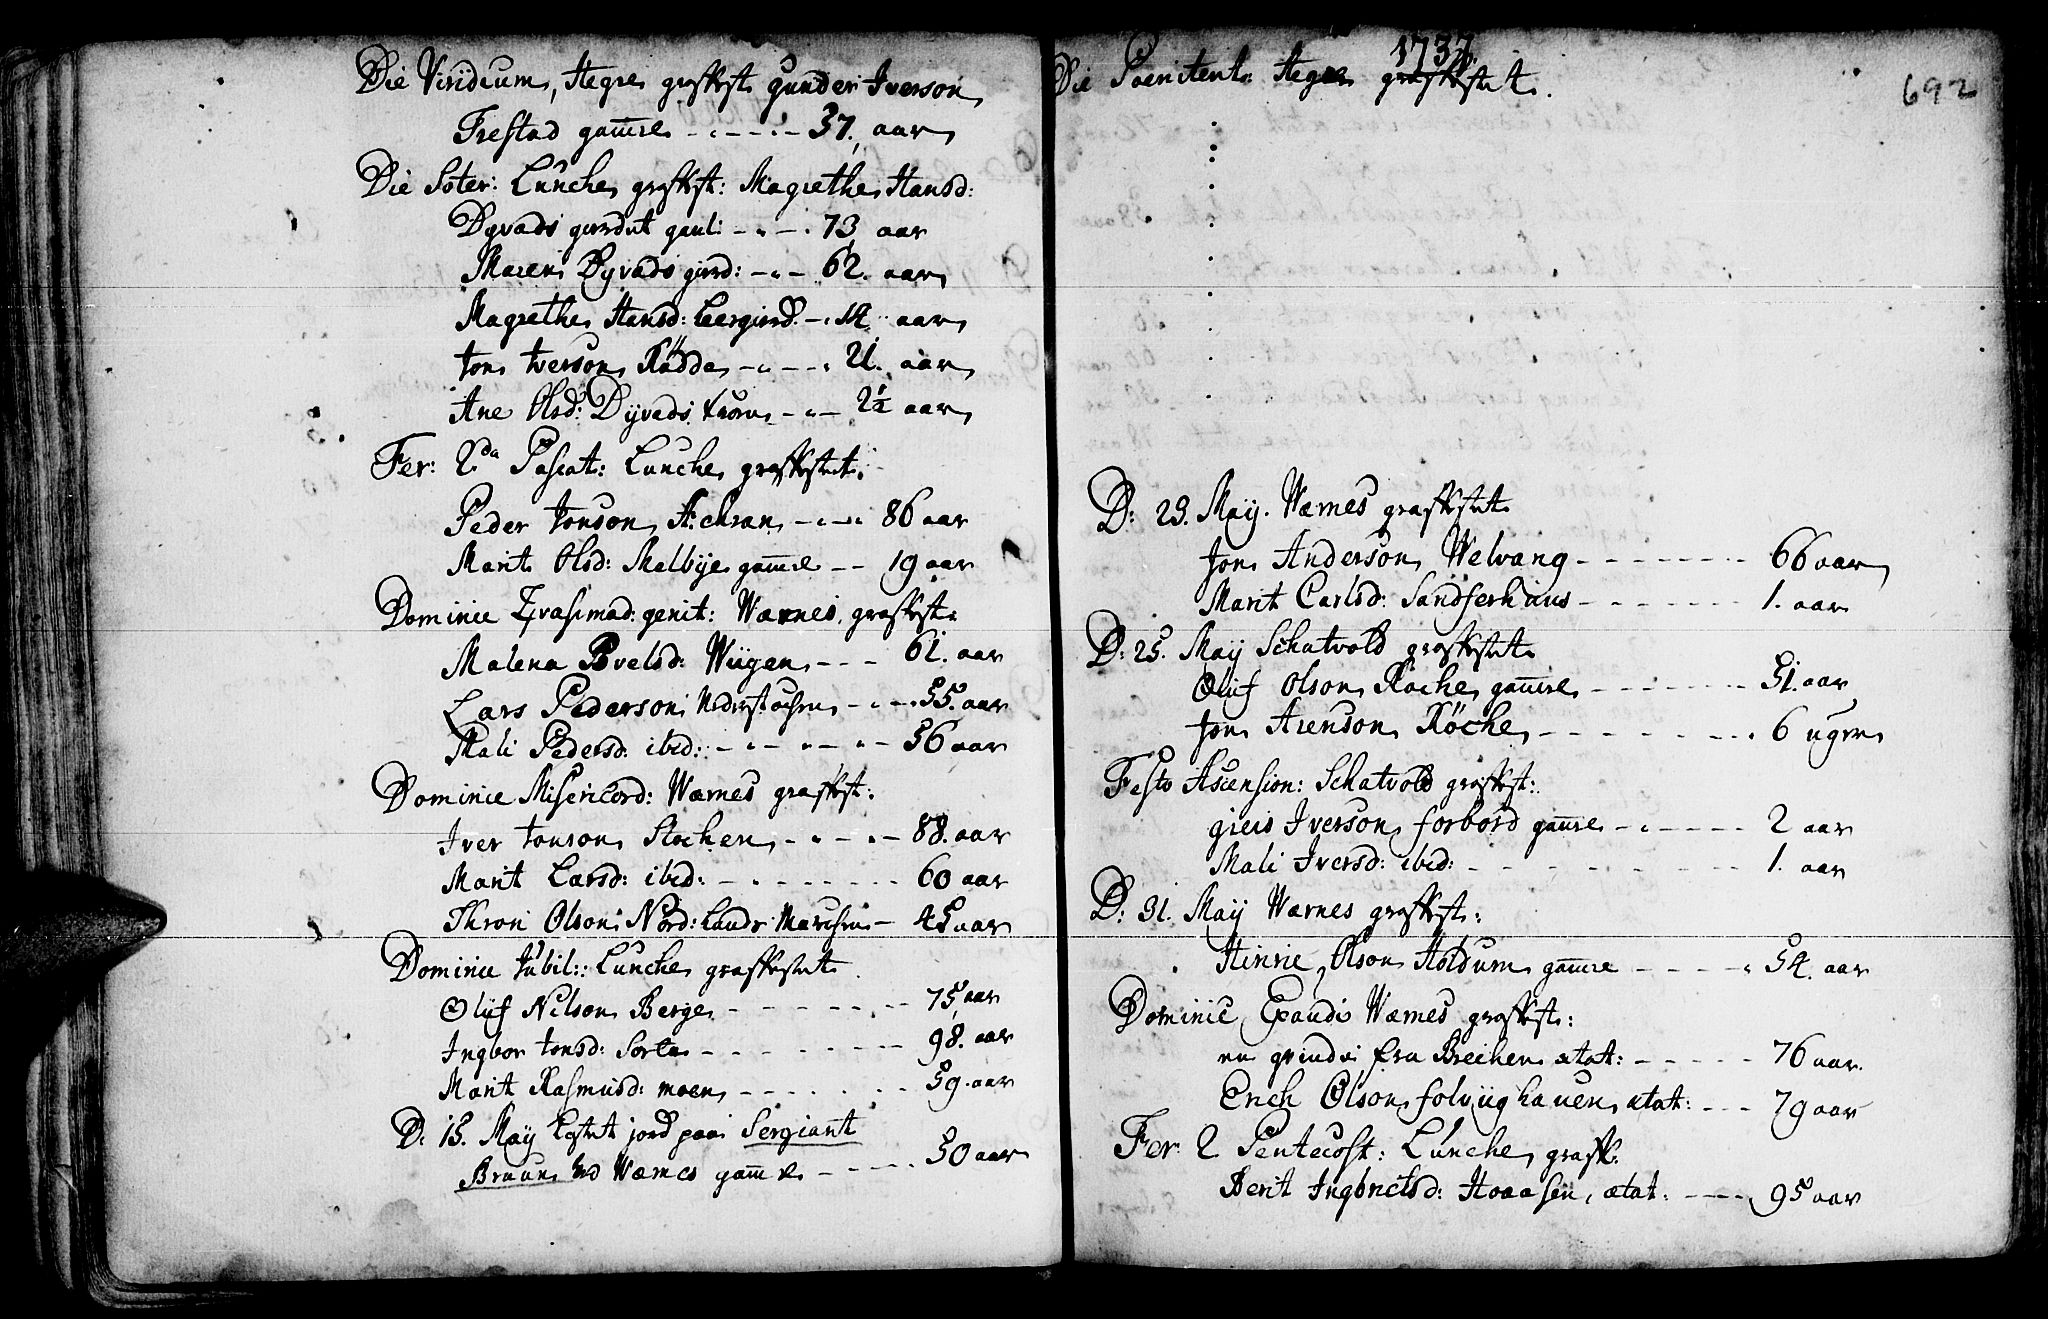 Die Viridium, Hegre graffest Gunder Iverson
Frestad gamre - - - 37. aar
Die Soter: Lunche graffst: Magrethe Hansd:
Dyvads gaml: - - - 73 aar
Maren Dyvads - - 62. aar
Magrethe Hansd: - 14 aar
Jon Iverson Rödde - - - 21. aar
Ane Olsd: Dyvads - - 2½ aar
Fer: 2da Pascat: Lunche graffestet.
Peder Jonson - - - 86 aar
Marit Olsd: Malbye gamre - - 19 aar
Dominic Qvasimod: genit: Wærnes graffest:
Malena Povelsd: Wiigen - - - 61. aar
Lars Pederson - - - 55. aar
Mali Pedersd: ibid: - - - - 56 aar
Dominic Misericord: Wærnes graffest:
Iver Jonson Stochen - - - 88. aar
Marit Larsd: ibid: - - - - - 60 aar
Thron Olson Nord: - 45 aar
Dominic Jubil:: Lunche graffestet
Oluf Nilson Berge - - - - - 75 aar
Ingbor Jonsd: Sorte - - - - - 98. aar
Marit Rasmusd: moen - - - - - 59. aar
D: 15. May jord paa Sergiant
Bruun Wærnes gamre - - - - 50 aar
1737
692
Die Poenitent: Hegre graffestet.
D: 23. May. Wærnes graffestet
Jon Anderson Welvang - - - - - - 66 aar
Marit Carlsd: Sandferhuus - - - - - - 1. aar
D: 25. May Schatvold graffestet
Oluf Olson Röche gamre - - - - - 51. aar
Jon Arenson Röche - - - - - - 6 uger
Festo Ascension: Schatvold graffest:
Iverson Forbord gamre - - - - - 2 aar
Mali Iversd: ibid: - - - - - - 1. aar
D: 31. May Wærnes graffest:
Hinric Olson Holdum gamre - - - - - 54. aar
Dominic Exaudi Wærnes graffest:
fra Brechen ætat: - - - - - 76 aar.
Erich Olson ætat: - - - 79 aar
Fer: 2 Pentecost: Lunche graff:
Berit Ingbrictsd: Hoaasen, ætat: - - - - 95 aar